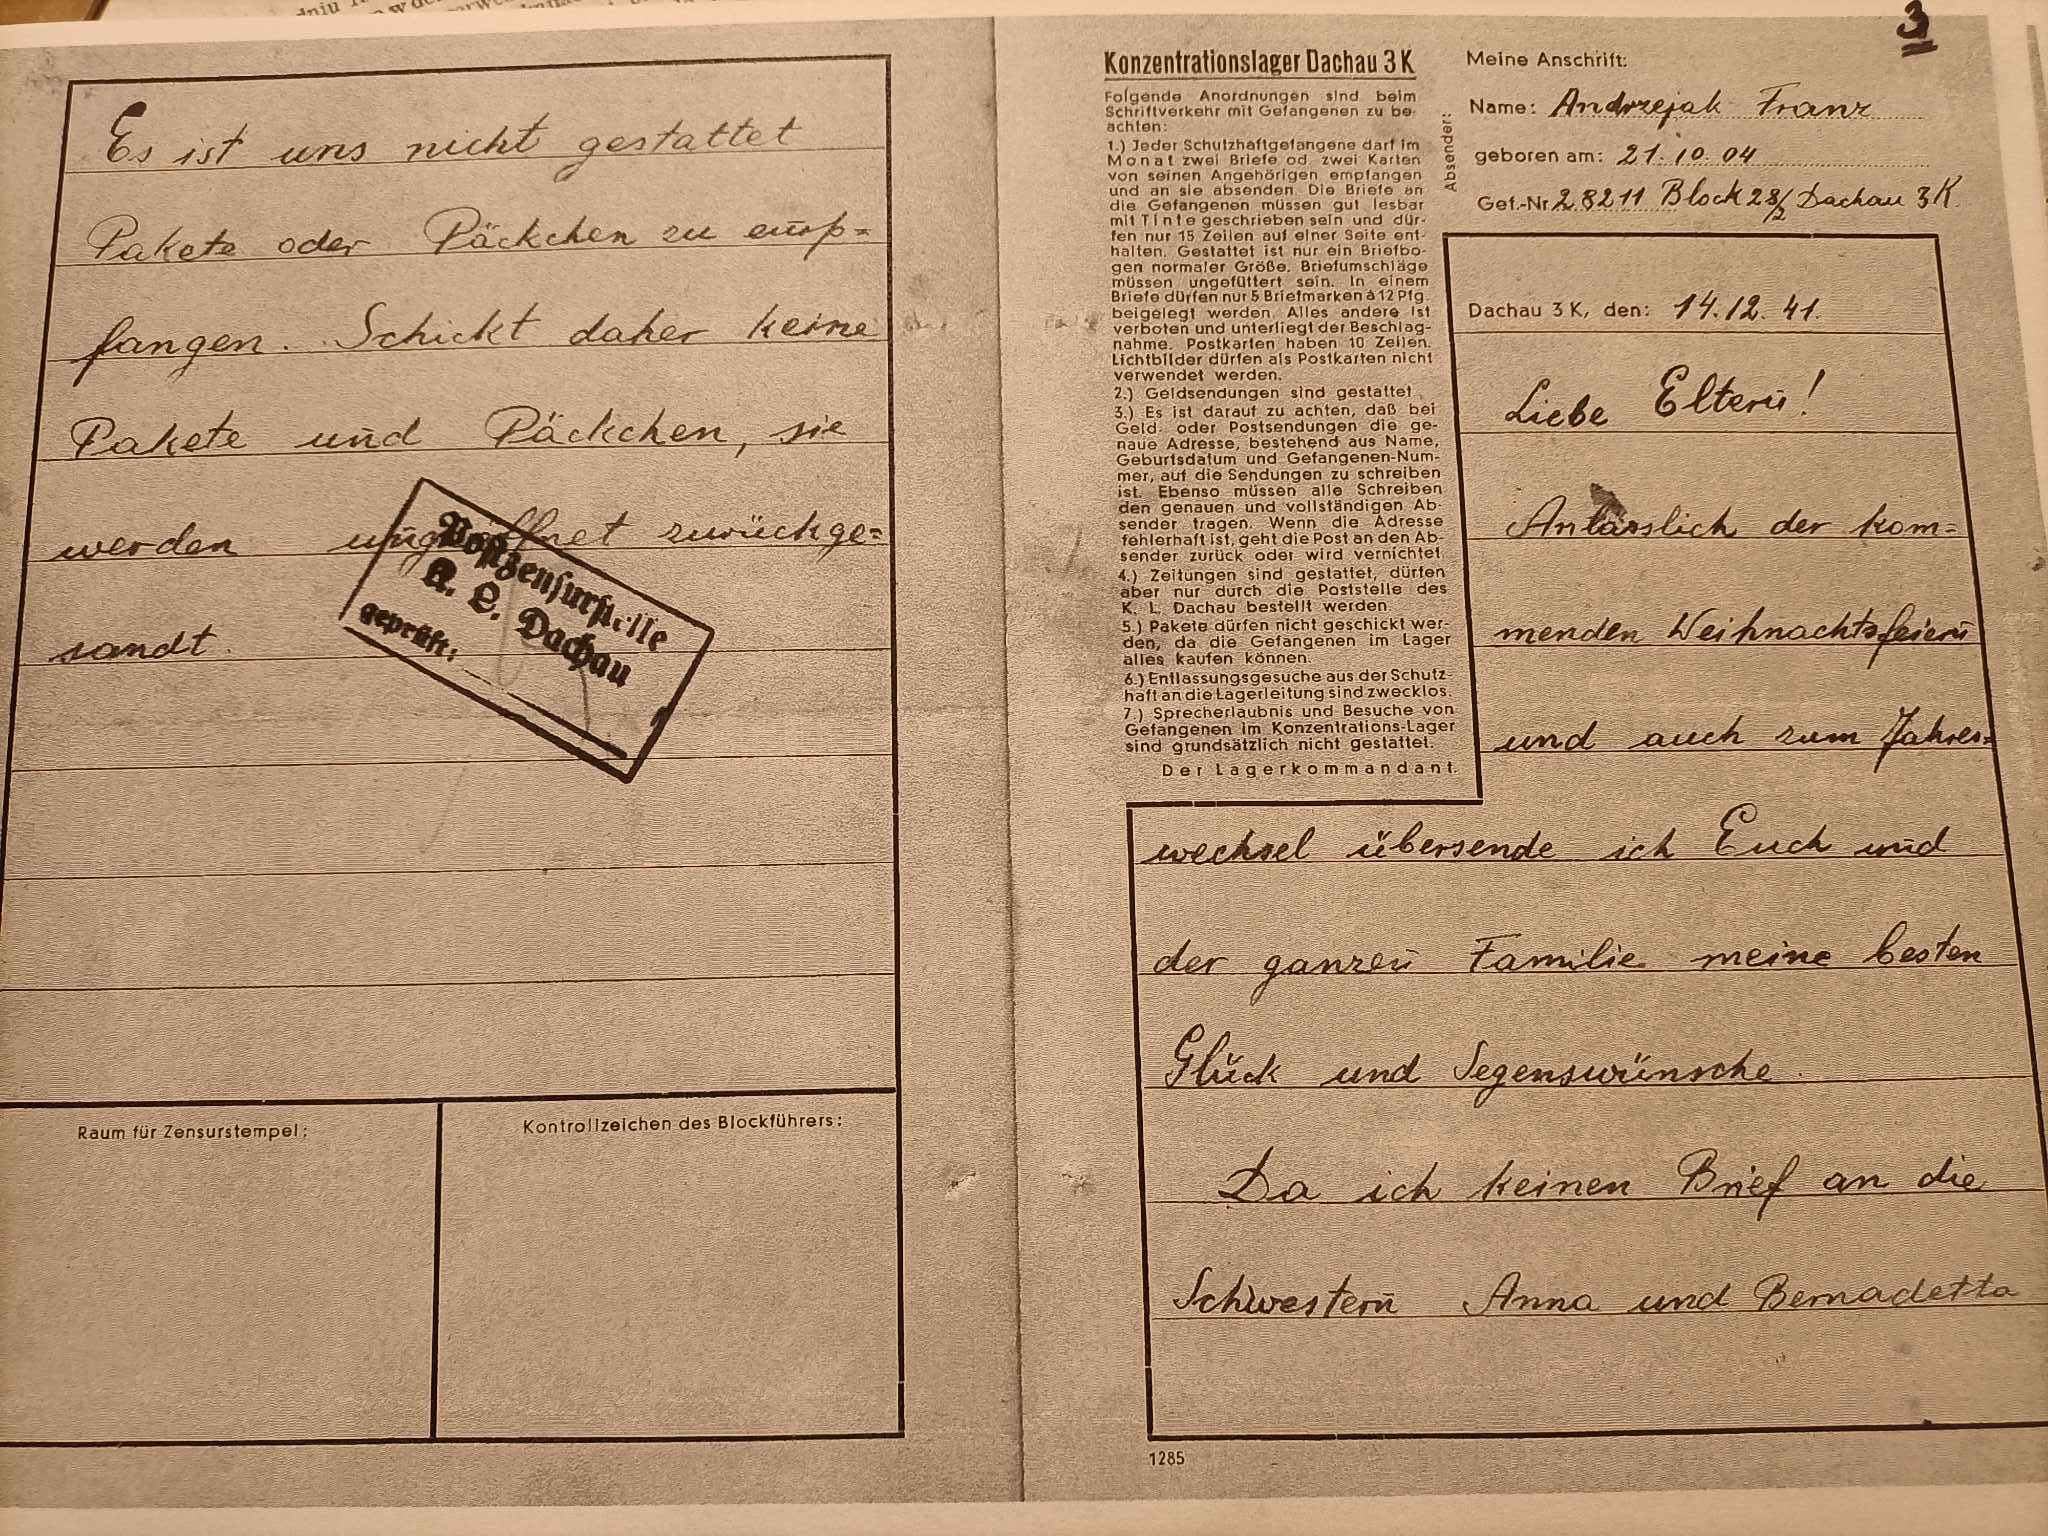 Es ist uns nicht gestattet
Pakete oder Päckchen zu emp=
fangen. Schickt daher keine
Pakete und Päckchen, sie
werden ungeöffnet zurückge=
sandt.
Postzensurstelle
K. L. Dachau
geprüft:
Raum für Zensurstempel:
Kontrollzeichen des Blockführers:
3
Konzentrationslager Dachau 3 K
Folgende Anordnungen sind beim
Schriftverkehr mit Gefangenen zu be-
achten:
1.) Jeder Schutzhaftgefangene darf im
Monat zwei Briefe od. zwei Karten
von seinen Angehörigen empfangen
und an sie absenden. Die Briefe an
die Gefangenen müssen gut lesbar
mit Tinte geschrieben sein und dür-
fen nur 15 Zeilen auf einer Seite ent-
halten. Gestattet ist nur ein Briefbo-
gen normaler Größe. Briefumschläge
müssen ungefüttert sein. In einem
Briefe dürfen nur 5 Briefmarken à 12 Pfg.
beigelegt werden. Alles andere ist
verboten und unterliegt der Beschlag-
nahme. Postkarten haben 10 Zeilen.
Lichtbilder dürfen als Postkarten nicht
verwendet werden.
2.) Geldsendungen sind gestattet.
3.) Es ist darauf zu achten, daß bei
Geld- oder Postsendungen die ge-
naue Adresse, bestehend aus Name,
Geburtsdatum und Gefangenen-Num-
mer, auf die Sendungen zu schreiben
ist. Ebenso müssen alle Schreiben
den genauen und vollständigen Ab-
sender tragen. Wenn die Adresse
fehlerhaft ist, geht die Post an den Ab-
sender zurück oder wird vernichtet.
4.) Zeitungen sind gestattet, dürfen
aber nur durch die Poststelle des
K. L. Dachau bestellt werden.
5.) Pakete dürfen nicht geschickt wer-
den, da die Gefangenen im Lager
alles kaufen können.
6.) Entlassungsgesuche aus der Schutz-
haft an die Lagerleitung sind zwecklos.
7.) Sprecherlaubnis und Besuche von
Gefangenen im Konzentrations-Lager
sind grundsätzlich nicht gestattet.
Der Lagerkommandant.
Absender:
Meine Anschrift:
Name: Andrzejak Franz
geboren am: 21.10.04
Gef.-Nr 28211 Block 28/2 Dachau 3K.
Dachau 3 K, den: 14.12.41.
Liebe Eltern!
Anlässlich der kom=
menden Weihnachtsfeiern
und auch zum Jahres=
wechsel übersende ich Euch und
der ganzen Familie meine besten
Glück und Segenswünsche.
Da ich keinen Brief an die
Schwestern Anna und Bernadetta
1285